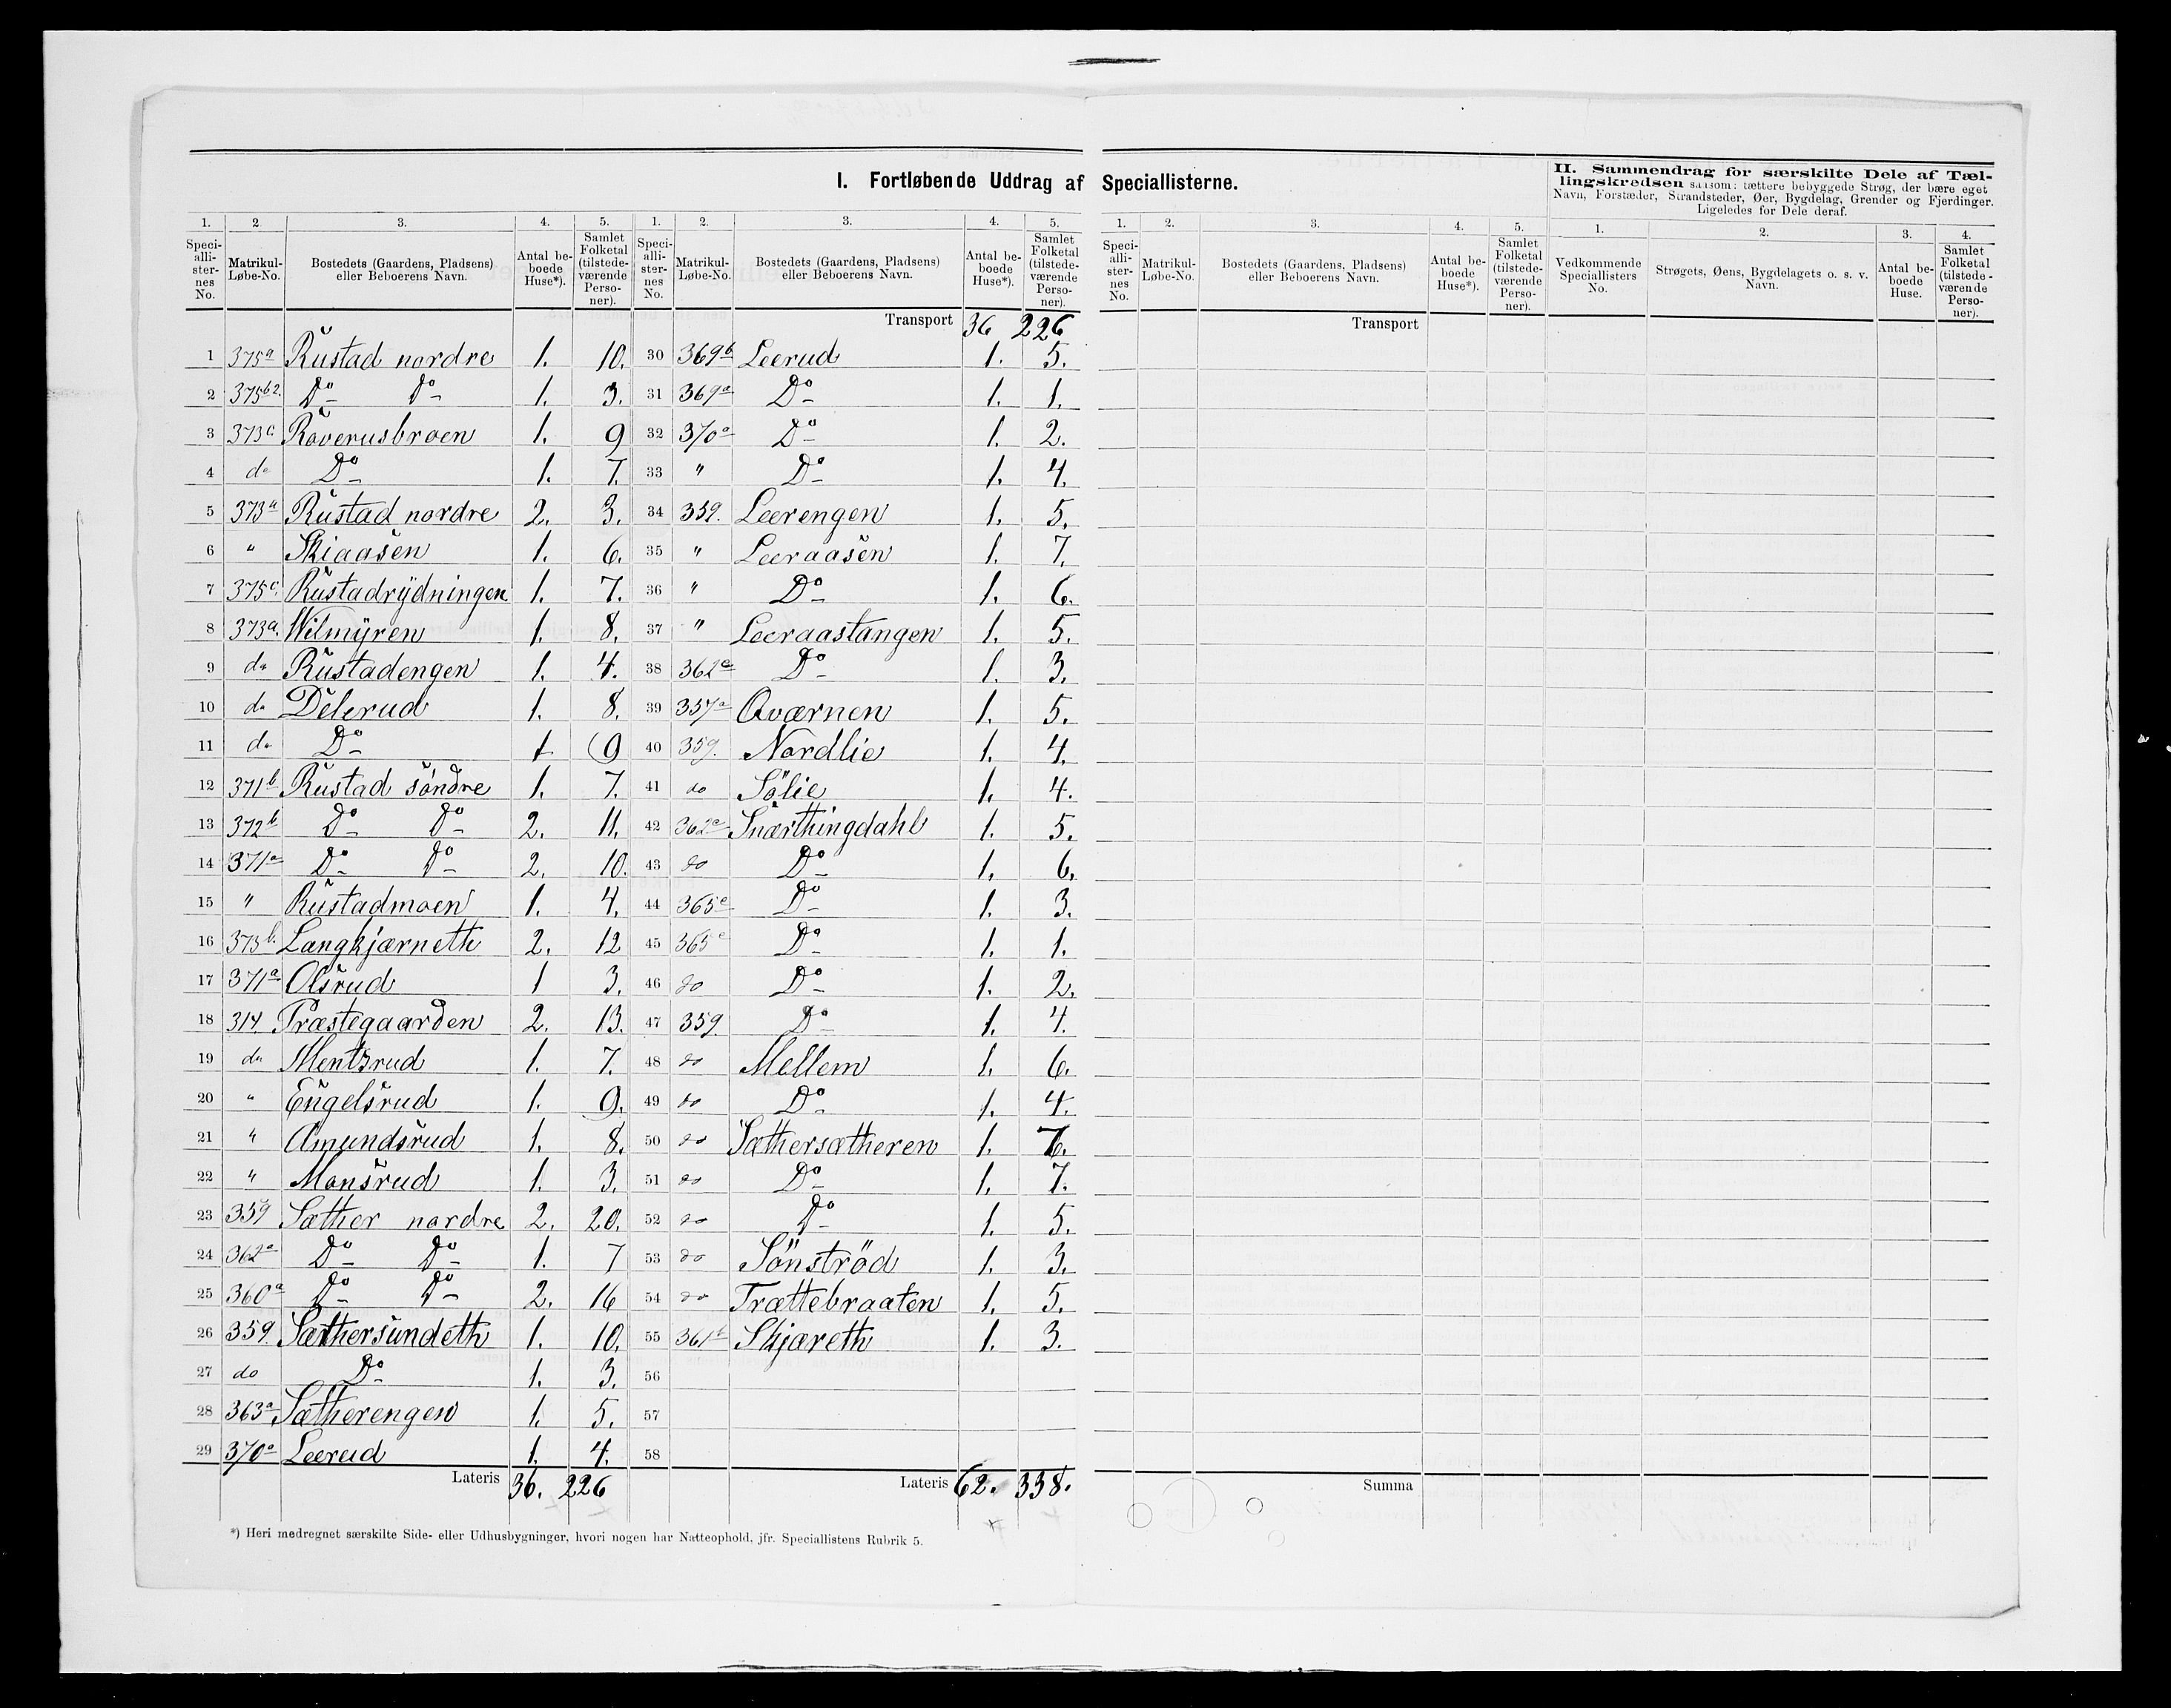 I. Fortløbende Uddrag af Speciallisterne.
II. Sammendrag for særskilte Dele af Tællingskredsen saasom: tættere bebyggede Strøg, der bære eget Navn, Forstæder, Strandsteder, Øer, Bygdelag, Grender og Fjerdinger. Ligeledes for Dele deraf.
1. 2. 3. 4. 5. 1. 2. 3. 4. 5.
Speciallisternes No. Matrikul-Løbe-No. Bostedets (Gaardens, Pladsens) eller Beboerens Navn. Antal beboede Huse*). Samlet Folketal (tilstedeværende Personer).
Speciallisternes No. Matrikul-Løbe-No. Bostedets (Gaardens, Pladsens) eller Beboerens Navn. Antal beboede Huse*). Samlet Folketal (tilstedeværende Personer).
1 375a Rustad nordre 1. 10.
2 375b2. Do Do 1. 3.
3 373c Roverusbroen 1. 9
4 do Do 1. 7.
5 373a Rustad nordre 2. 3.
6 " Skiaasen 1. 6.
7 375c. Rustadrydningen 1. 7.
8 373a. Wilmyren 1. 8.
9 do Rustadengen 1. 4.
10 do Delerud 1. 8.
11 do Do 1 (9
12 371b Rustad söndre 1. 7.
13 372b Do Do 2. 11.
14 371a Do Do 2. 10.
15 " Rustadmoen 1. 4.
16 373b. Langkjærneth 2. 12
17 371a Olsrud 1 3.
18 314 Præstegaarden 2. 13.
19 do Mentsrud 1. 7.
20 " Engelsrud 1. 9.
21 " Amundsrud 1. 8.
22 " Monsrud 1. 3.
23 359 Sæther nordre 2. 20.
24 362a Do Do 1. 7
25 360a Do Do 2. 16
26 359. Sæthersundeth 1. 10.
27 do Do 1. 3.
28 363a Sætherengen 1. 5.
29 370a Leerud 1. 4.
Lateris 36. 226
Transport 36 226
30 369b Leerud 1. 5.
31 369a Do 1. 1.
32 370a Do 1. 2.
33 " Do 1. 4.
34 359. Leerengen 1. 5.
35 " Leeraasen 1. 7.
36 " Do 1. 6.
37 " Leeraastangen 1. 5.
38 362a Do 1. 3.
39 357a Qværnen 1. 5.
40 359. Nordlie 1. 4.
41 do Sölie 1. 4.
42 362a Snærthingdahl 1. 5.
43 do Do 1. 6.
44 365e Do 1. 3.
45 365e Do 1. 1.
46 do Do 1. 2.
47 359. Do 1. 4.
48 do Mellem 1. 6.
49 do Do 1. 4.
50 do Sæthersætheren 1.
51 do Do 1. 7.
52 do Do 1. 5.
53 do Sönströd 1. 3.
54 do Trættebraaten 1. 5.
55 361b Skjæreth 1. 3.
56
57
58
Lateris 62. 338.
*) Heri medregnet særskilte Side- eller Udhusbygninger, hvori nogen har Natteophold, jfr. Speciallistens Rubrik 5.
1. 2. 3. 4. 5.
Speciallisternes No. Matrikul-Løbe-No. Bostedets (Gaardens, Pladsens) eller Beboerens Navn. Antal beboede Huse*). Samlet Folketal (tilstedeværende Personer).
Transport
Summa
1. 2. 3. 4.
Vedkommende Speciallisters No. Strøgets, Øens, Bygdelagets o. s. v. Navn. Antal beboede Huse. Samlet Folketal (tilstedeværende Personer).